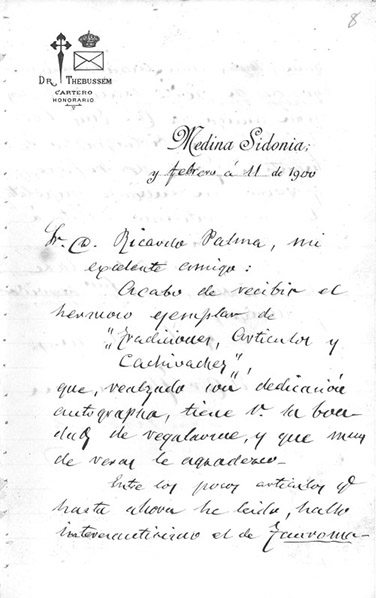 8
DR. THEBUSSEM
CARTERO
HONORARIO
Medina Sidonia,
y febrero á 11 de 1900
Sr. D. Ricardo Palma, mi
excelente amigo:
Acabo de recibir el
hermoso ejemplar de
"Tradiciones, Articulos y
Cachivaches",
que, realzado con dedicatoria
autographa, tiene V. la bon-
dad de regalarme, y que muy
de veras le agradezco.
Entre los pocos articulos q̃
hasta ahora he leido, hallo
interesantisimo el de Tauroma-